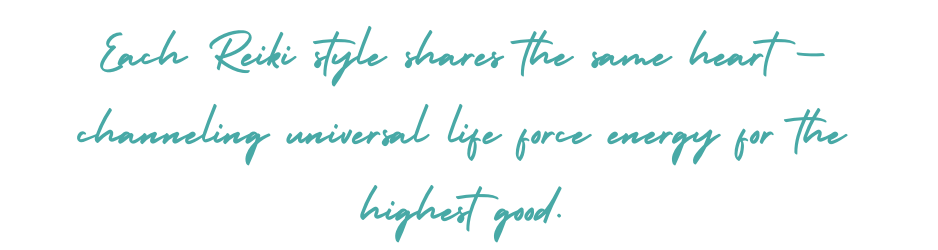 Each Reiki style shares the same heart –
channeling universal life force energy for the
highest good.